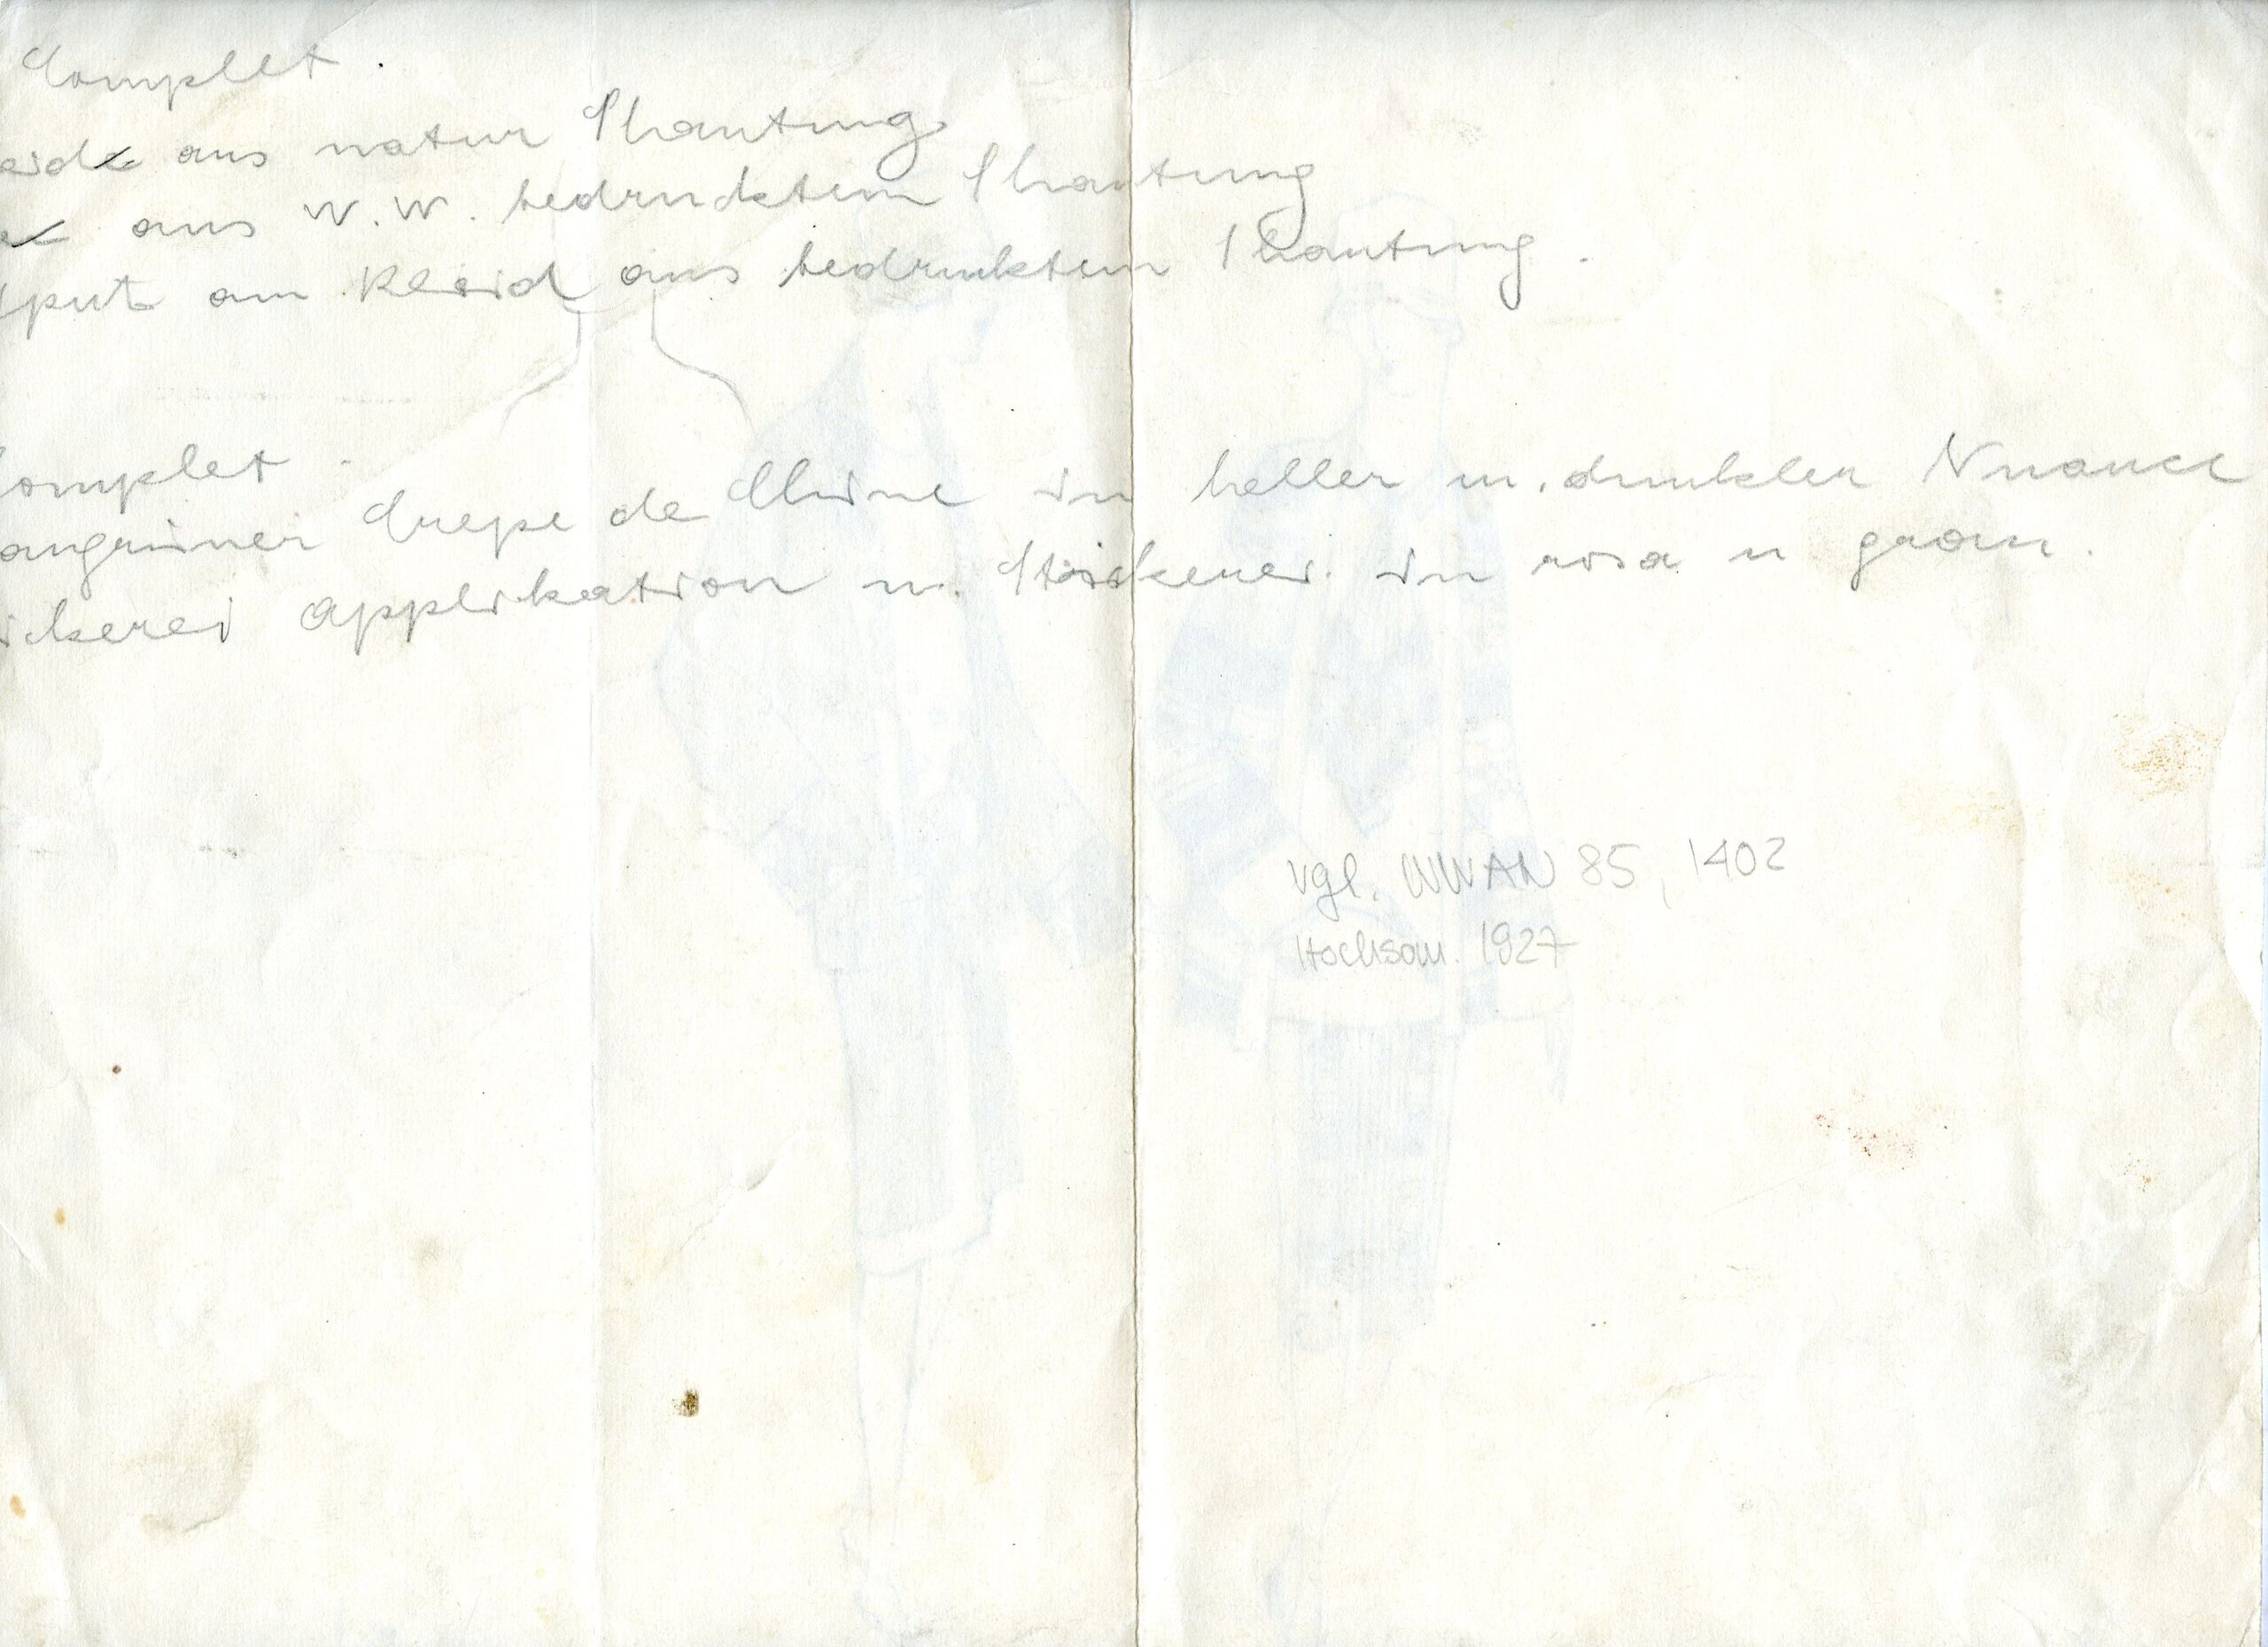 Complet.
eide aus natur Shantung
aus W.W. bedrucktem Shantung
fput am Kleid aus bedrucktem Shantung.
Complet
angrüner Crepe de Chine in heller u. dunkler Nuance
ickerei applikation u. Stickerei in rosa u grau.
vgl. WWAN 85, 1402
Hochsom. 1927